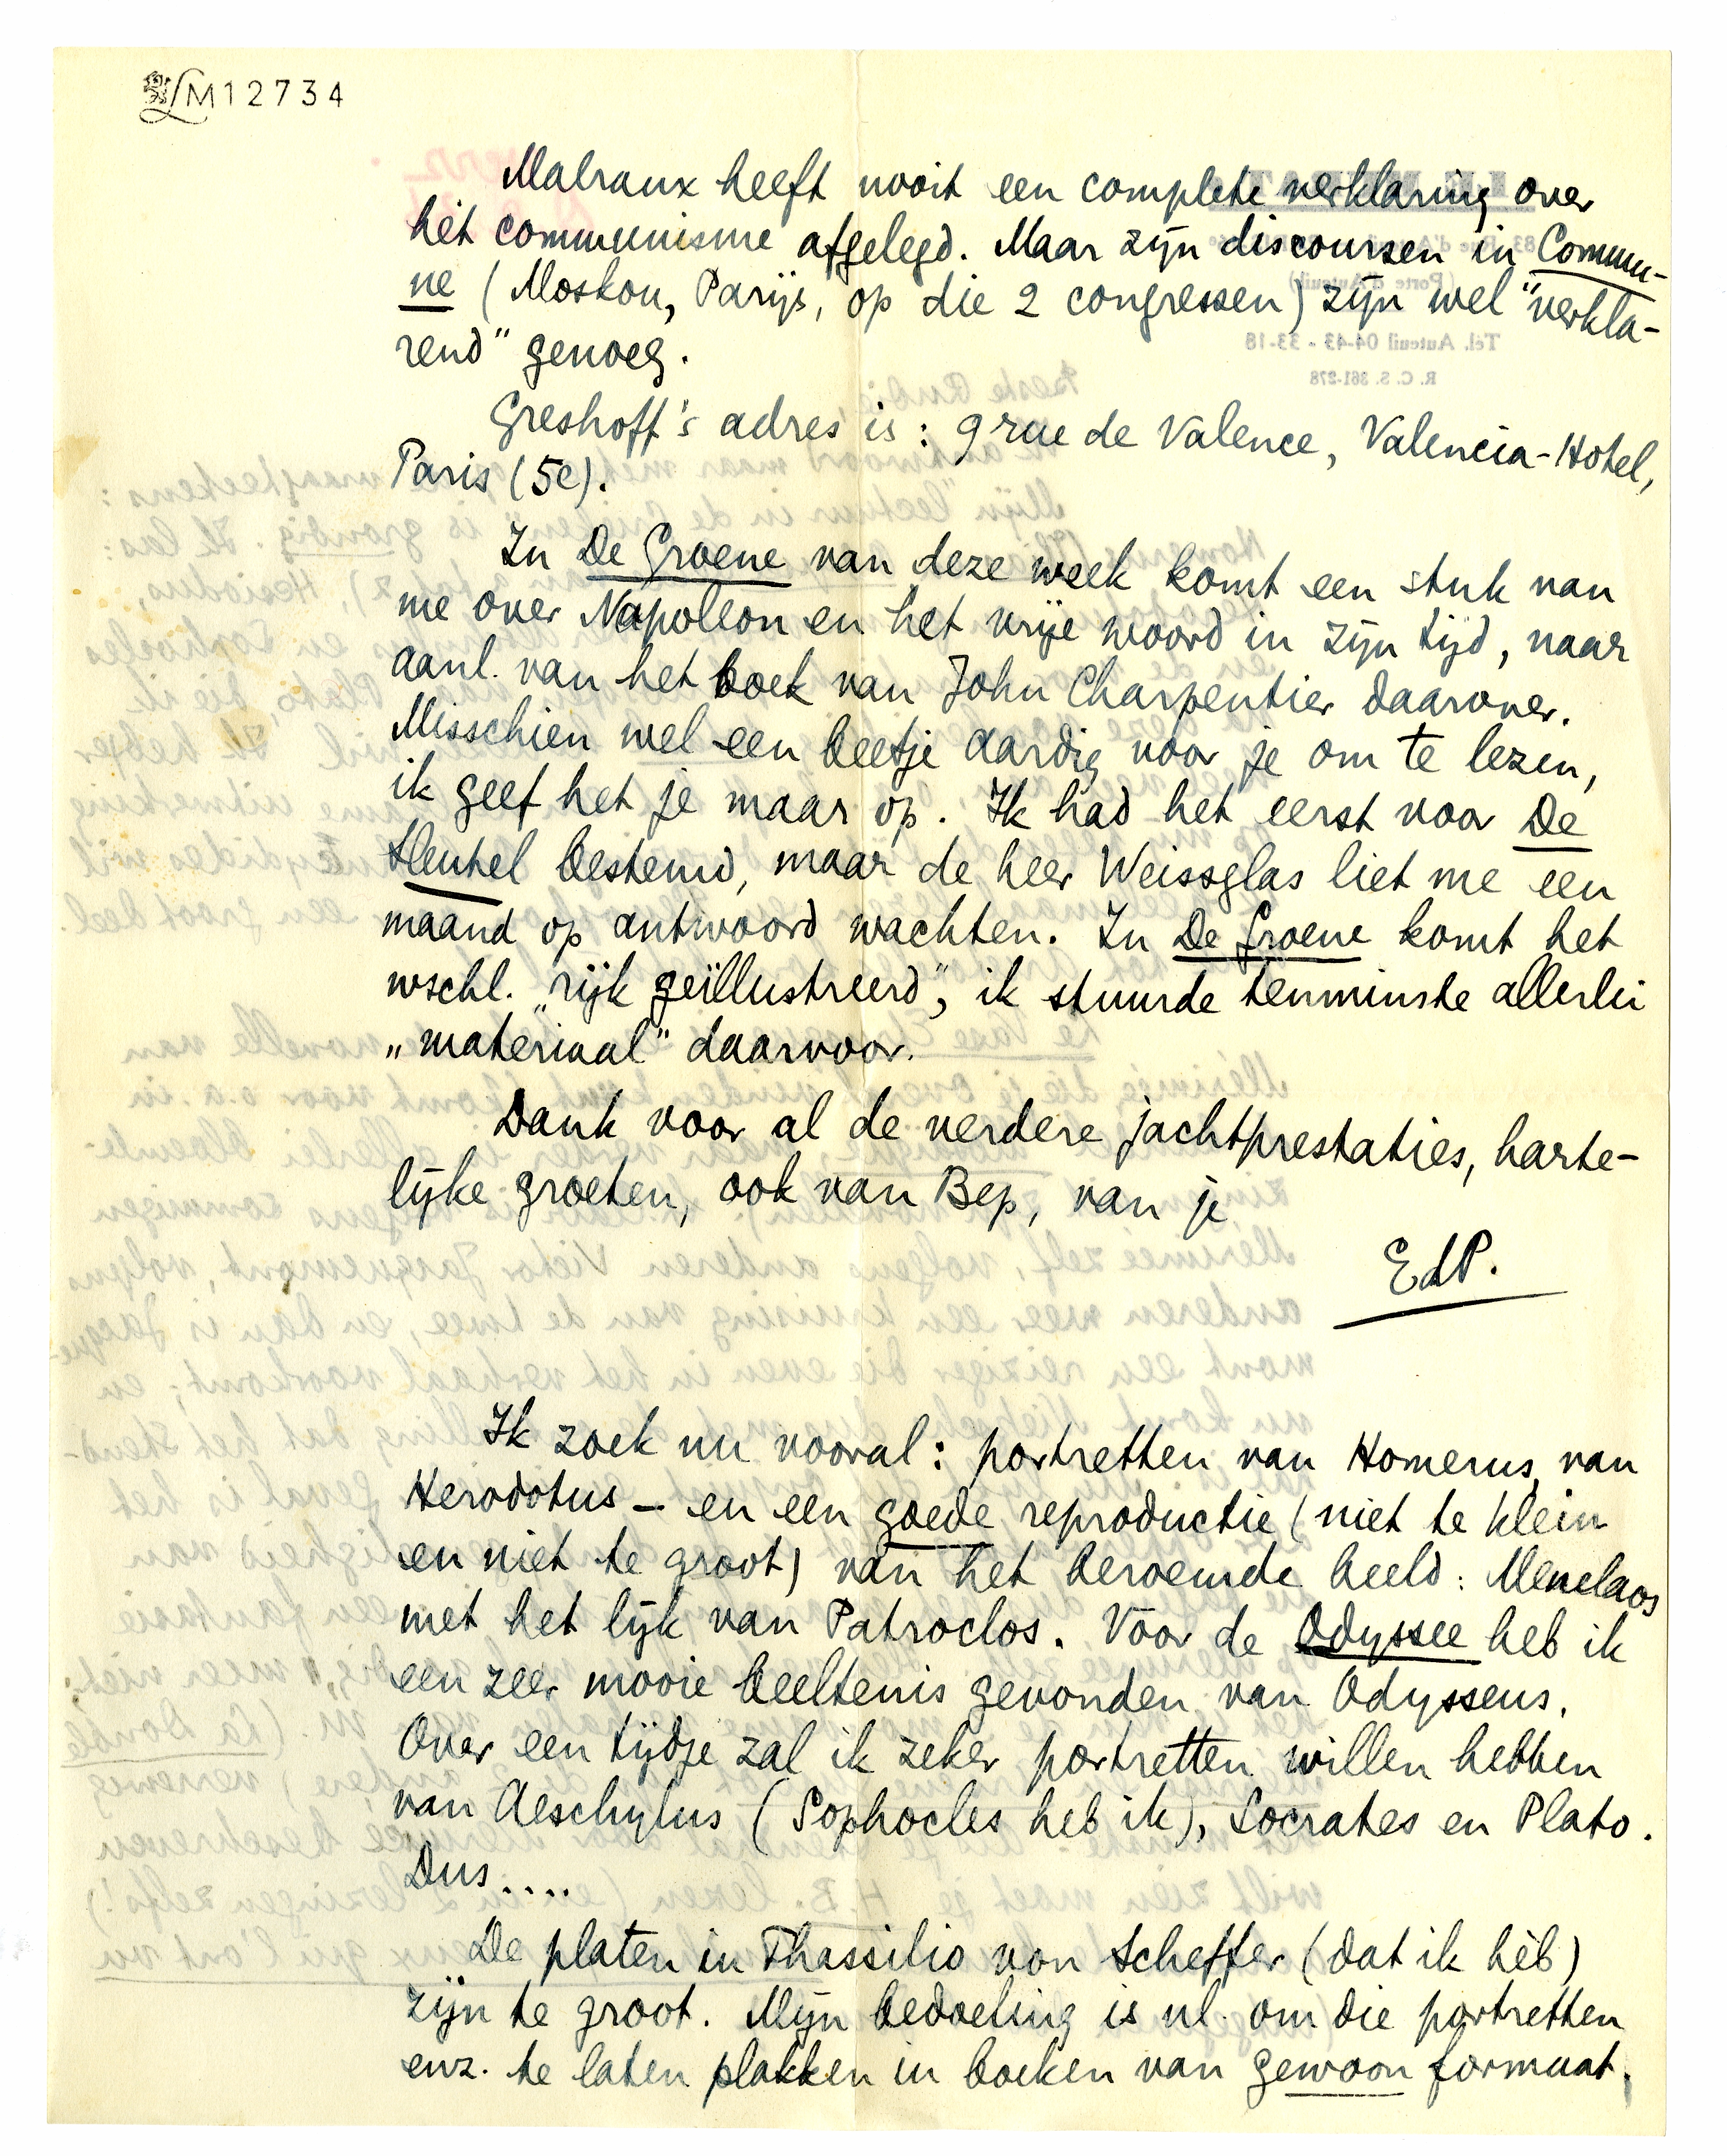 LM12734
Malraux heeft nooit een complete verklaring over
hèt communisme afgelegd. Maar zijn discoursen in Commu-
ne (Moskou, Parijs, op die 2 congressen) zijn wel "verkla-
rend" genoeg.
Greshoff's adres is: 9 rue de Valence, Valencia-Hotel,
Paris (5e).
In De Groene van deze week komt een stuk van
me over Napoleon en het vrije woord in zijn tijd, naar
aanl. van het boek van John Charpentier daarover.
Misschien wel een beetje aardig voor je om te lezen,
ik geef het je maar op. Ik had het eerst voor De
Sleutel bestemd, maar de heer Weissglas liet me een
maand op antwoord wachten. In De Groene komt het
wschl. "rijk geïllustreerd", ik stuurde tenminste allerlei
„materiaal" daarvoor.
Dank voor al de verdere jachtprestaties, harte-
lijke groeten, ook van Bep, van je
EdP.
Ik zoek nu vooral: portretten van Homerus, van
Herodotus – en een goede reproductie (niet te klein
en niet te groot) van het beroemde beeld: Menelaos
met het lijk van Patroclos. Voor de Odyssee heb ik
een zeer mooie beeltenis gevonden van Odysseus.
Over een tijdje zal ik zeker portretten willen hebben
van Aeschylus (Sophocles heb ik), Socrates en Plato.
Dus....
De platen in Thassilio von Scheffer (dat ik hèb)
zijn te groot. Mijn bedoeling is nl. om die portretten
enz. te laten plakken in boeken van gewoon formaat.